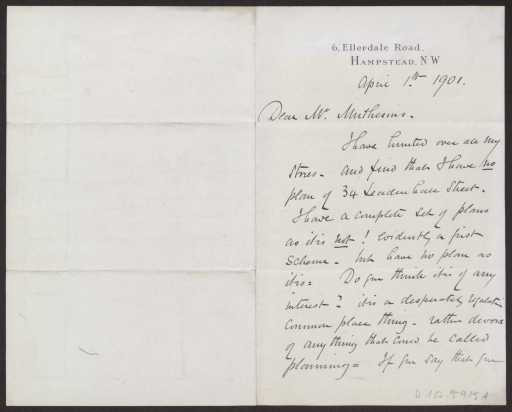 6, Ellerdale Road.
HAMPSTEAD, N W
April 1st 1901.
Dear Mr. Muthesius.
I have hunted over all my
stores - and find that I have no
plan of 34 Leadenhall Street.
I have a complete set of plans
as it is not! Evidently a first
scheme - but have no plan as
it is: Do you think it is of any
interest? it is a desperately regulation
common place thing - rather devoid
of anything that could be called
planning = If you say that you